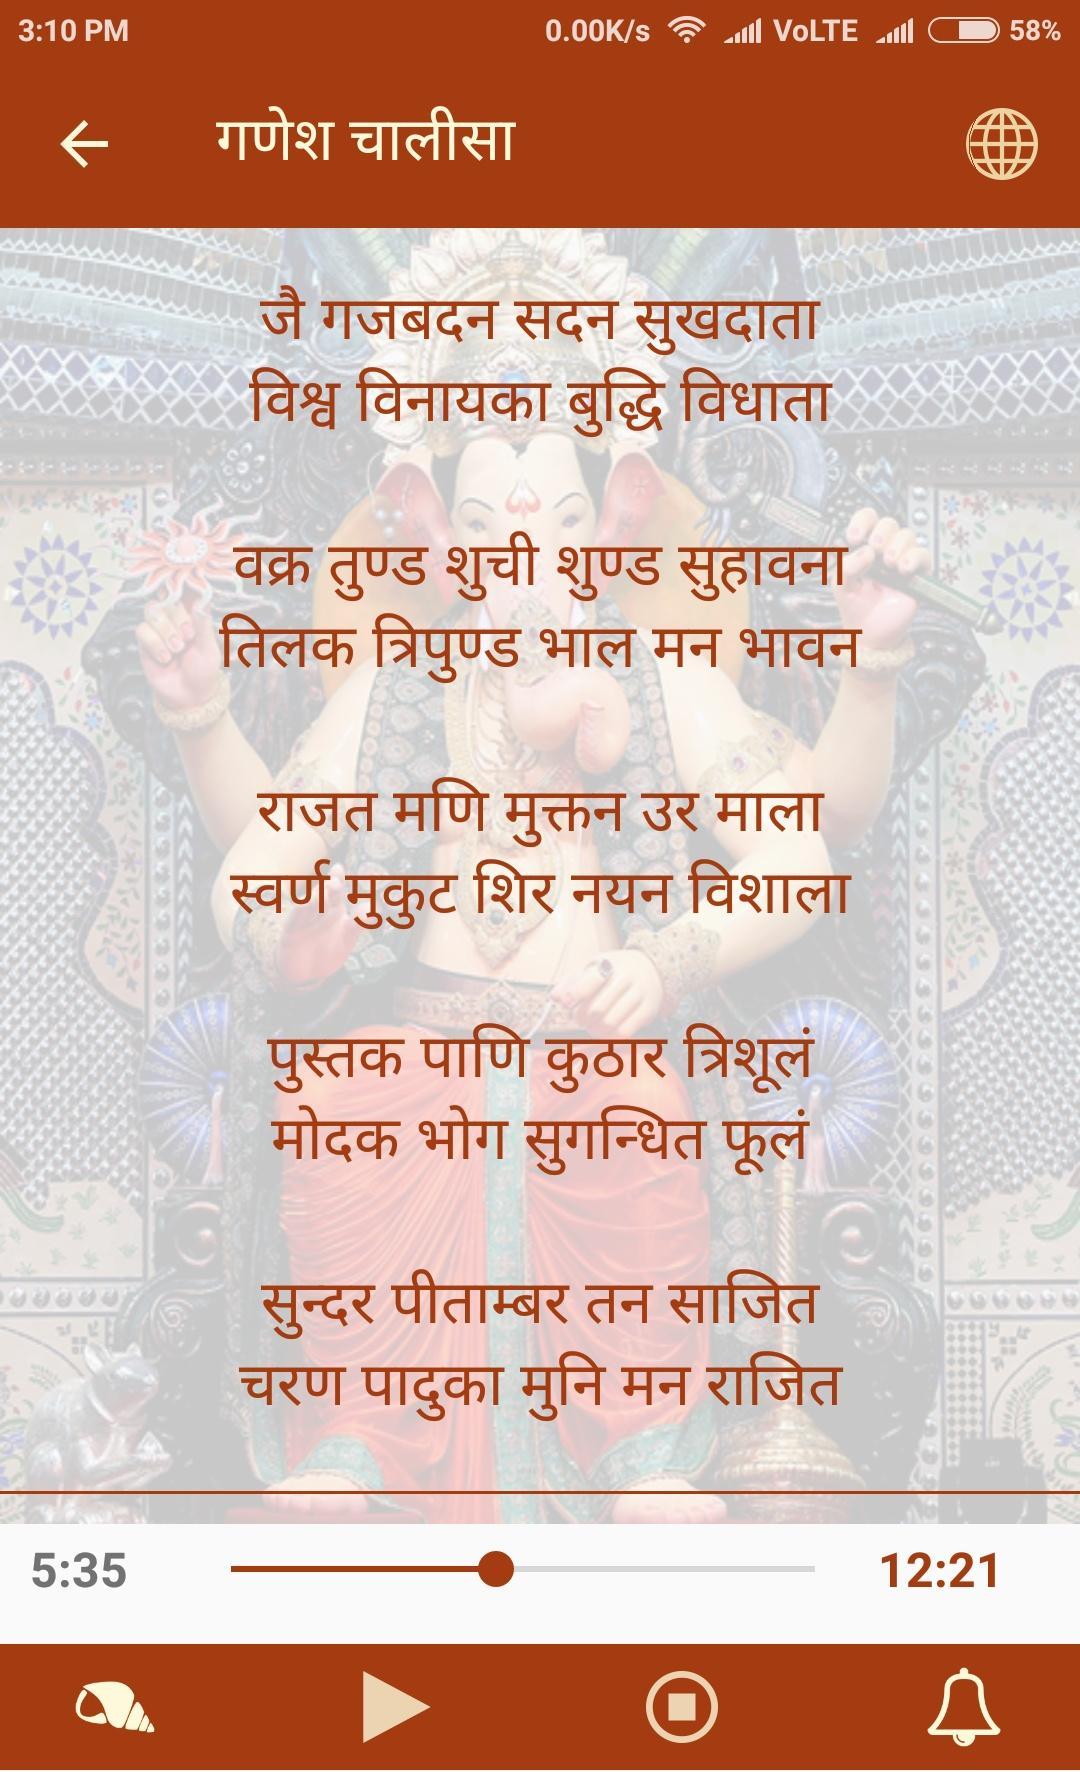 3:10 PM 0.00K/s VoLTE 58%
गणेश चालीसा
जै गजबदन सदन सुखदाता
विश्व विनायका बुद्धि विधाता
वक्र तुण्ड शुची शुण्ड सुहावना
तिलक त्रिपुण्ड भाल मन भावन
राजत मणि मुक्तन उर माला
स्वर्ण मुकुट शिर नयन विशाला
पुस्तक पाणि कुठार त्रिशूलं
मोदक भोग सुगन्धित फूलं
सुन्दर पीताम्बर तन साजित
चरण पादुका मुनि मन राजित
5:35 12:21